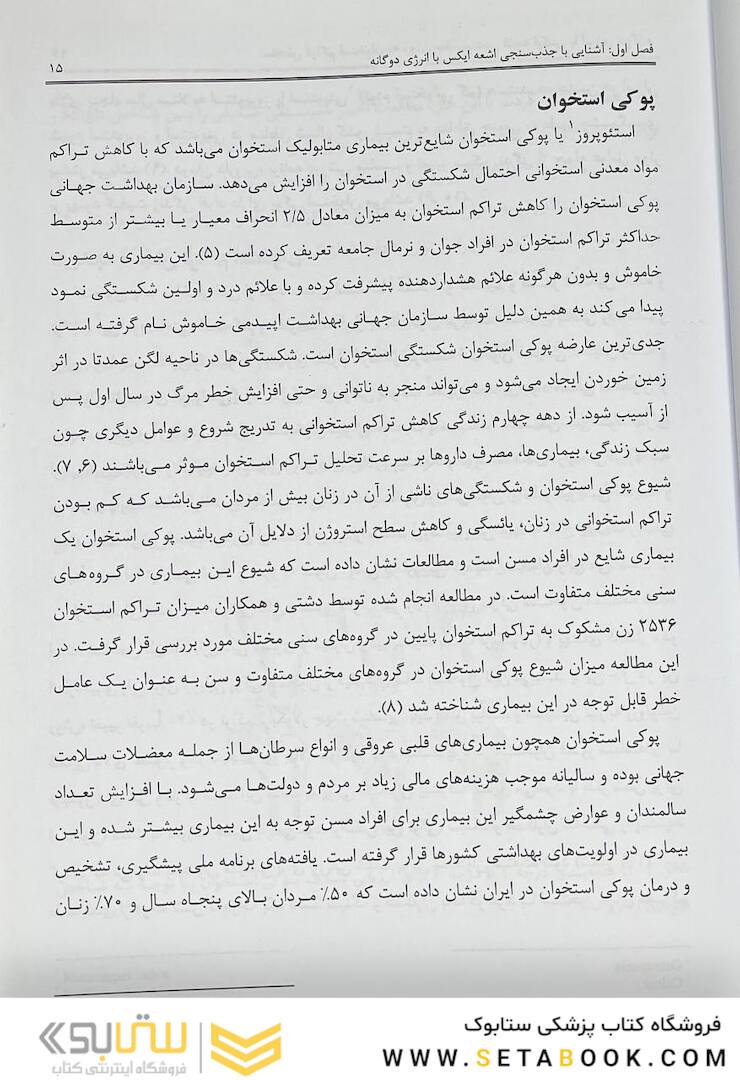 فصل اول: آشنایی با جذب‌سنجی اشعه ایکس با انرژی دوگانه
۱۵
پوکی استخوان
استئوپروز۱ یا پوکی استخوان شایع‌ترین بیماری متابولیک استخوان می‌باشد که با کاهش تراکم
مواد معدنی استخوانی احتمال شکستگی در استخوان را افزایش می‌دهد. سازمان بهداشت جهانی
پوکی استخوان را کاهش تراکم استخوان به میزان معادل ۲/۵ انحراف معیار یا بیشتر از متوسط
حداکثر تراکم استخوان در افراد جوان و نرمال جامعه تعریف کرده است (۵). این بیماری به صورت
خاموش و بدون هرگونه علائم هشداردهنده پیشرفت کرده و با علائم درد و اولین شکستگی نمود
پیدا می‌کند به همین دلیل توسط سازمان جهانی بهداشت اپیدمی خاموش نام گرفته است.
جدی‌ترین عارضه پوکی استخوان شکستگی استخوان است. شکستگی‌ها در ناحیه لگن عمدتا در اثر
زمین خوردن ایجاد می‌شود و می‌تواند منجر به ناتوانی و حتی افزایش خطر مرگ در سال اول پس
از آسیب شود. از دهه چهارم زندگی کاهش تراکم استخوانی به تدریج شروع و عوامل دیگری چون
سبک زندگی، بیماری‌ها، مصرف داروها بر سرعت تحلیل تراکم استخوان موثر می‌باشند (۶, ۷).
شیوع پوکی استخوان و شکستگی‌های ناشی از آن در زنان بیش از مردان می‌باشد که کم بودن
تراکم استخوانی در زنان، یائسگی و کاهش سطح استروژن از دلایل آن می‌باشد. پوکی استخوان یک
بیماری شایع در افراد مسن است و مطالعات نشان داده است که شیوع این بیماری در گروه‌های
سنی مختلف متفاوت است. در مطالعه انجام شده توسط دشتی و همکاران میزان تراکم استخوان
۲۵۳۶ زن مشکوک به تراکم استخوان پایین در گروه‌های سنی مختلف مورد بررسی قرار گرفت. در
این مطالعه میزان شیوع پوکی استخوان در گروه‌های مختلف متفاوت و سن به عنوان یک عامل
خطر قابل توجه در این بیماری شناخته شد (۸).
پوکی استخوان همچون بیماری‌های قلبی عروقی و انواع سرطان‌ها از جمله معضلات سلامت
جهانی بوده و سالیانه موجب هزینه‌های مالی زیاد بر مردم و دولت‌ها می‌شود. با افزایش تعداد
سالمندان و عوارض چشمگیر این بیماری برای افراد مسن توجه به این بیماری بیشتر شده و این
بیماری در اولویت‌های بهداشتی کشورها قرار گرفته است. یافته‌های برنامه ملی پیشگیری، تشخیص
و درمان پوکی استخوان در ایران نشان داده است که ۵۰٪ مردان بالای پنجاه سال و ۷۰٪ زنان
فروشگاه کتاب پزشکی ستابوک
WWW.SETABOOK.COM
ستابوک
فروشگاه اینترنتی کتاب